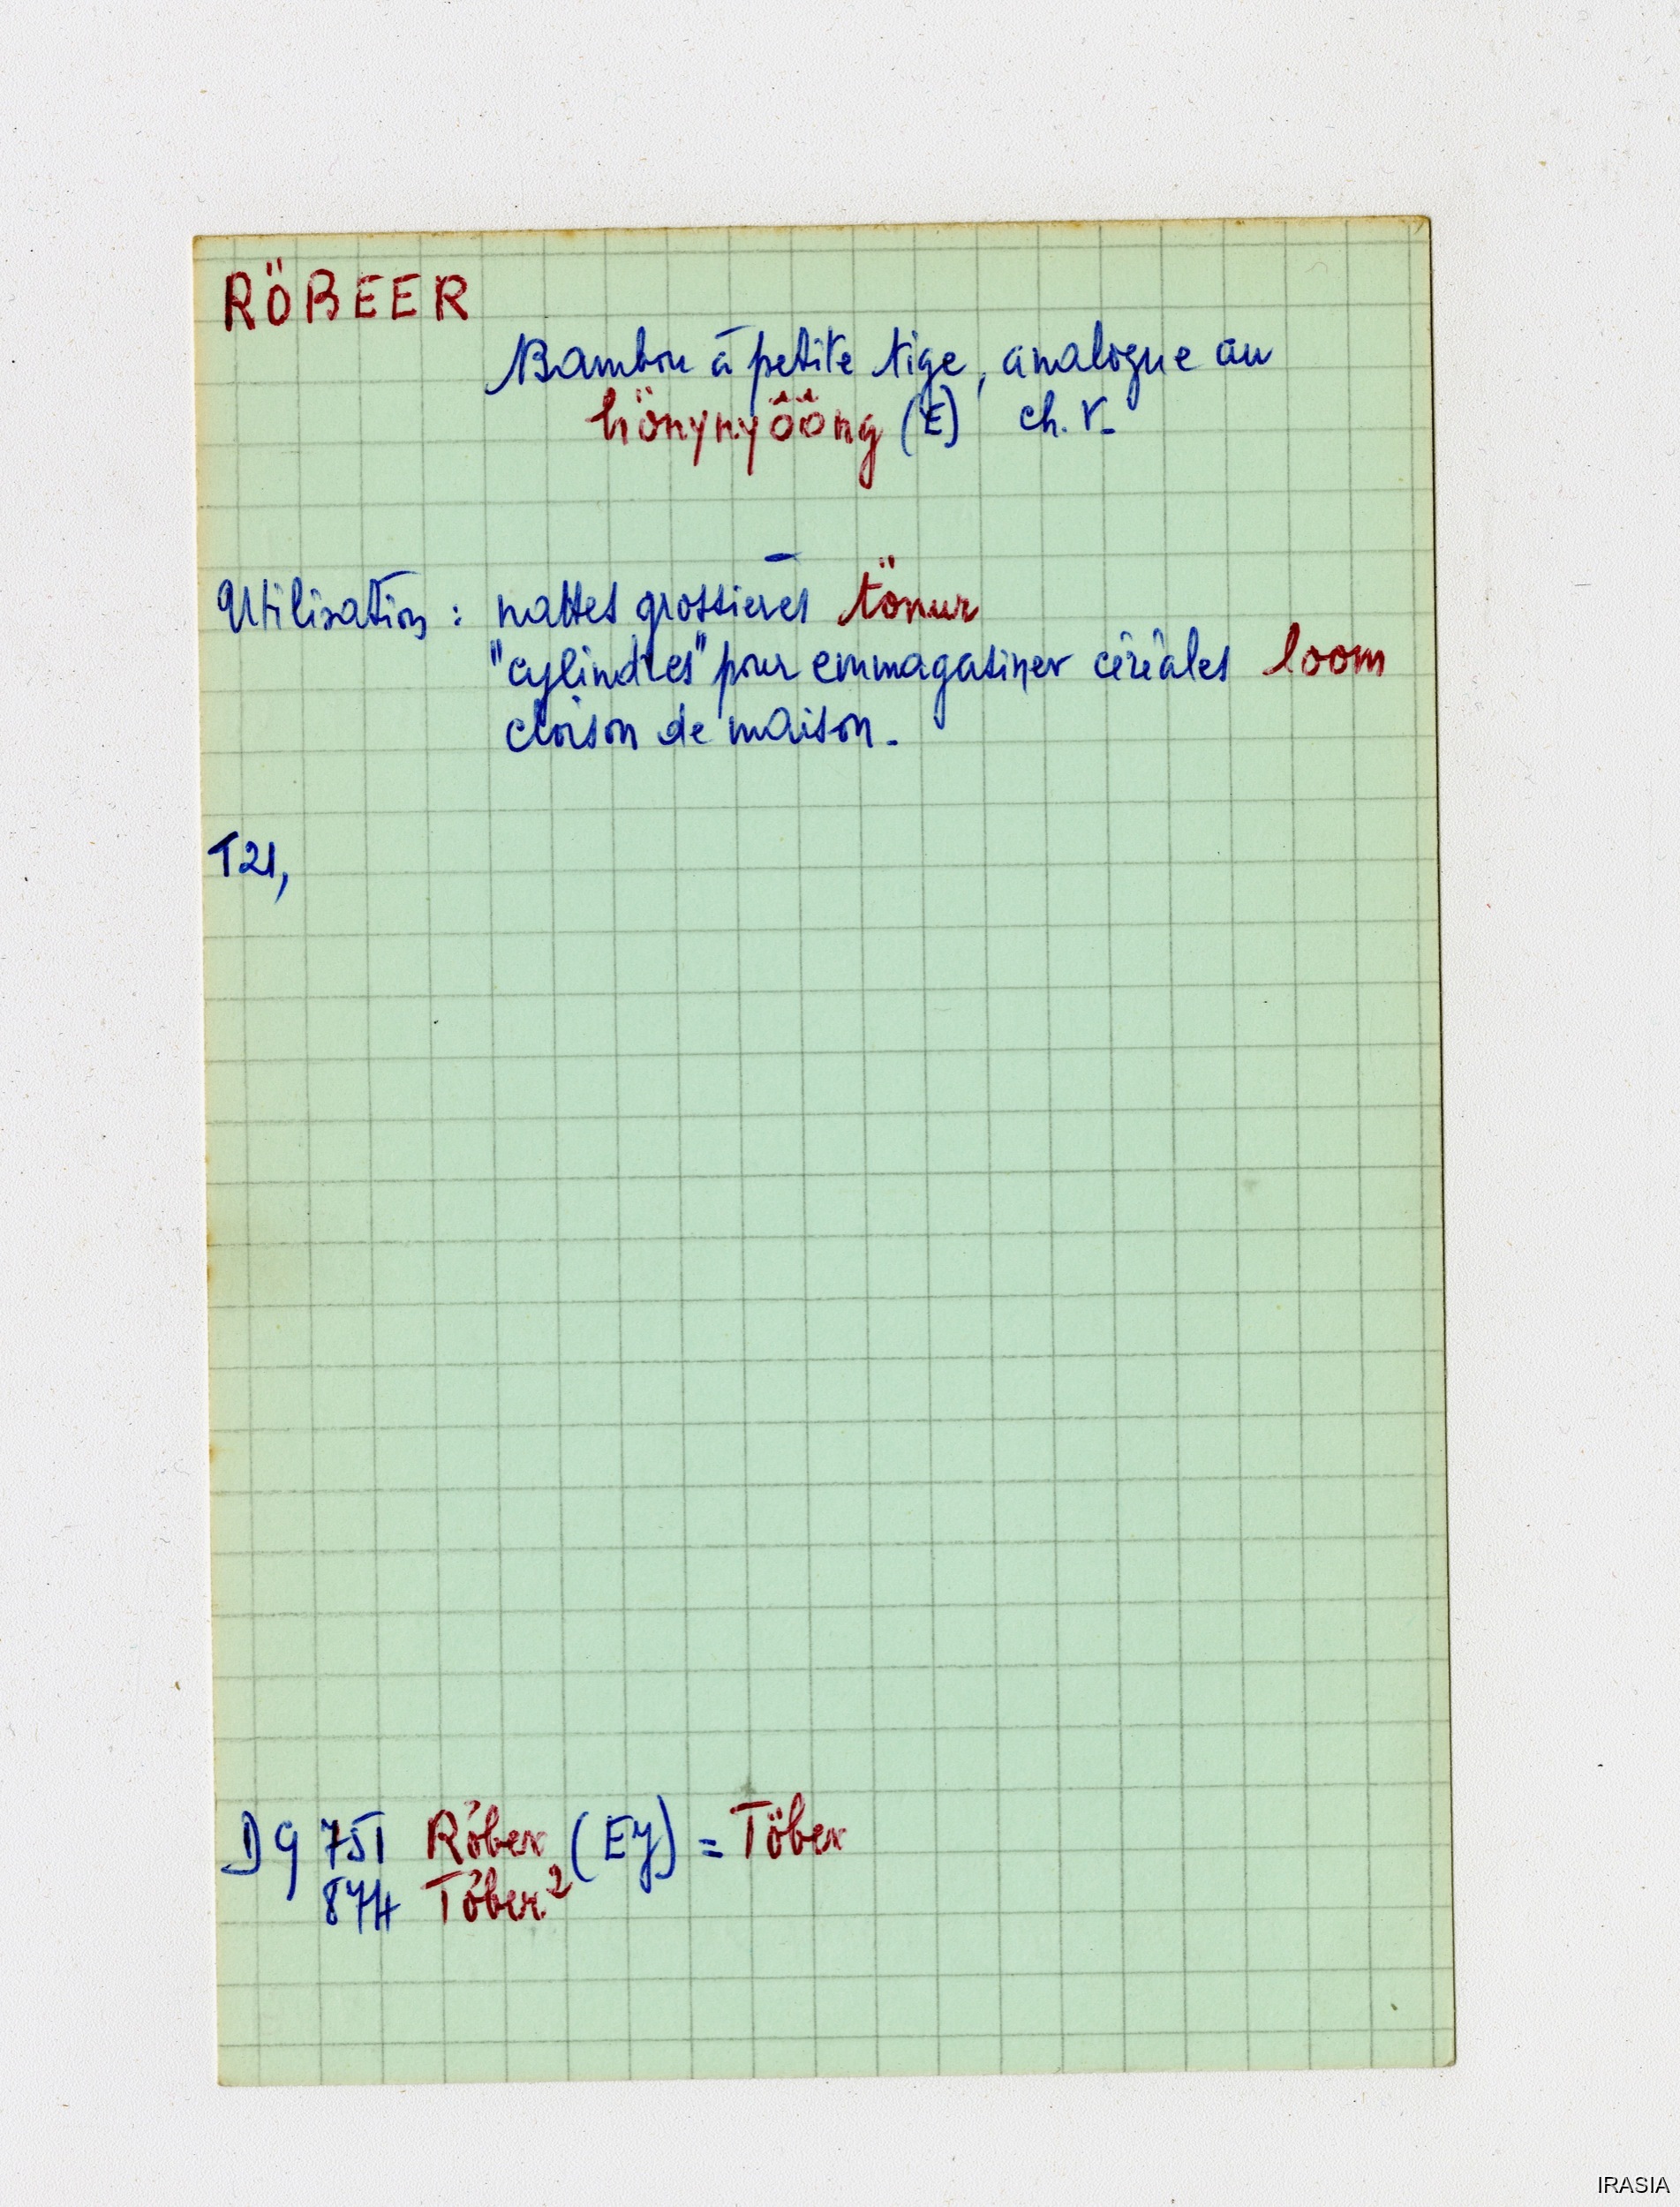 RÖBEER
Bambou à petite tige, analogue au
hönynyôông (E) ch. r.
Utilisation : nattes grossières tönur
"cylindres" pour emmagasiner céréales loom
cloison de maison.
T21,
D9 751 Röber (Ey) = Töber
874 Töber²
IRASIA